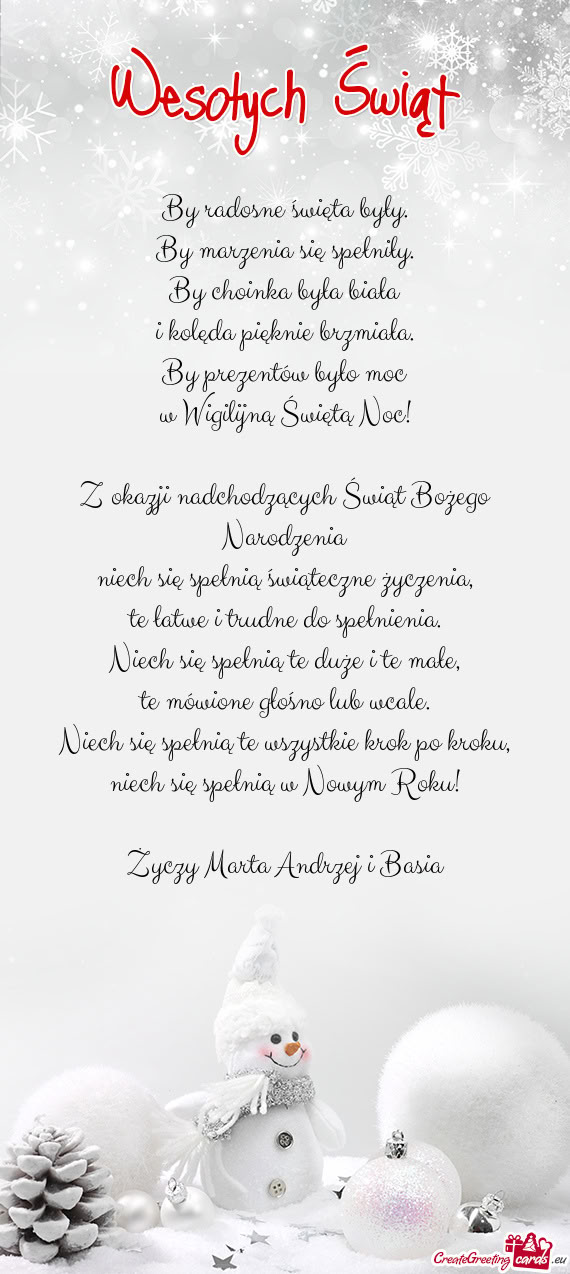 Wesołych Świąt
By radosne święta były.
By marzenia się spełniły.
By choinka była biała
i kolęda pięknie brzmiała.
By prezentów było moc
w Wigilijną Świętą Noc!
Z okazji nadchodzących Świąt Bożego
Narodzenia
niech się spełnią świąteczne życzenia,
te łatwe i trudne do spełnienia.
Niech się spełnią te duże i te małe,
te mówione głośno lub wcale.
Niech się spełnią te wszystkie krok po kroku,
niech się spełnią w Nowym Roku!
Życzy Marta Andrzej i Basia
CreateGreetingcards.eu